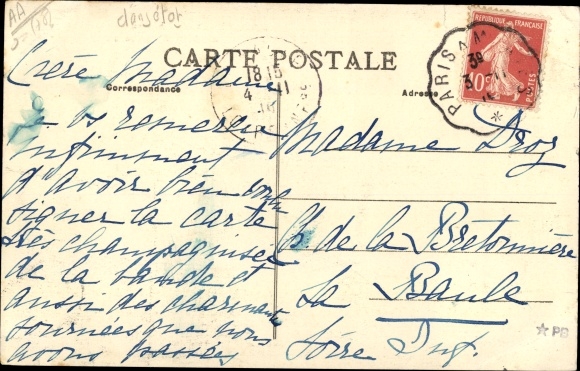 AA
CARTE POSTALE
Correspondance
Adresse
RÉPUBLIQUE FRANÇAISE
POSTES
10
PARIS A
30
18 15
4 - 11
Madame
remercier
infiniment
d'avoir bien voulu
signer la carte
très champagnisée
de la bande et
aussi des charmantes
journées que nous
avons passées
Madame Droz
de la Bretonnière
La Baule
Loire Inf.
★PB